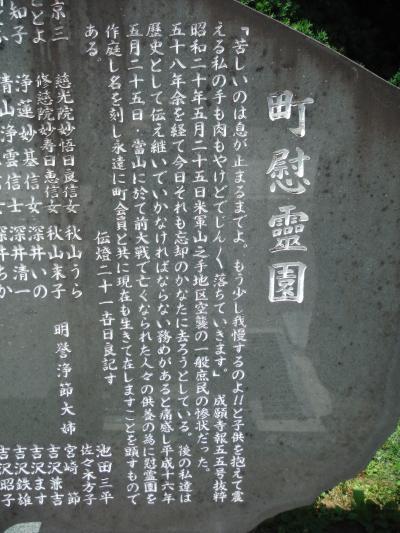 町慰靈園
『苦しいのは息が止まるまでよ。もう少し我慢するのよ!!と子供を抱えて震
える私の手も肉もやけどでじんじん落ちていきます。』 成願寺報五五号抜粋
昭和二十年五月二十五日米軍山之手地区空襲の一般庶民の惨状だった。
五十八年余を経て今日それも忘却のかなたに去ろうとしている。後の私達は
歴史として伝え継いでいかなければならない務めがあると痛感し平成十六年
五月二十五日・當山に於て前大戦で亡くなられた人々の供養の為に慰霊園を
作庭し名を刻し永遠に町会員と共に現在も生きて在しますことを顕すもので
ある
伝燈二十一吉日良記す
京三 慈光院妙悟日良信女 秋山うら 明誉浄節大姉 池田三平
とよ 修慈院妙寿日恵信女 秋山末子 佐々木方子
知子 浄蓮妙基信女 深井いの 宮崎節
清山浄雲信士 深井清一 吉沢兼吉
吉沢ます
吉沢鉄雄
吉沢昭子